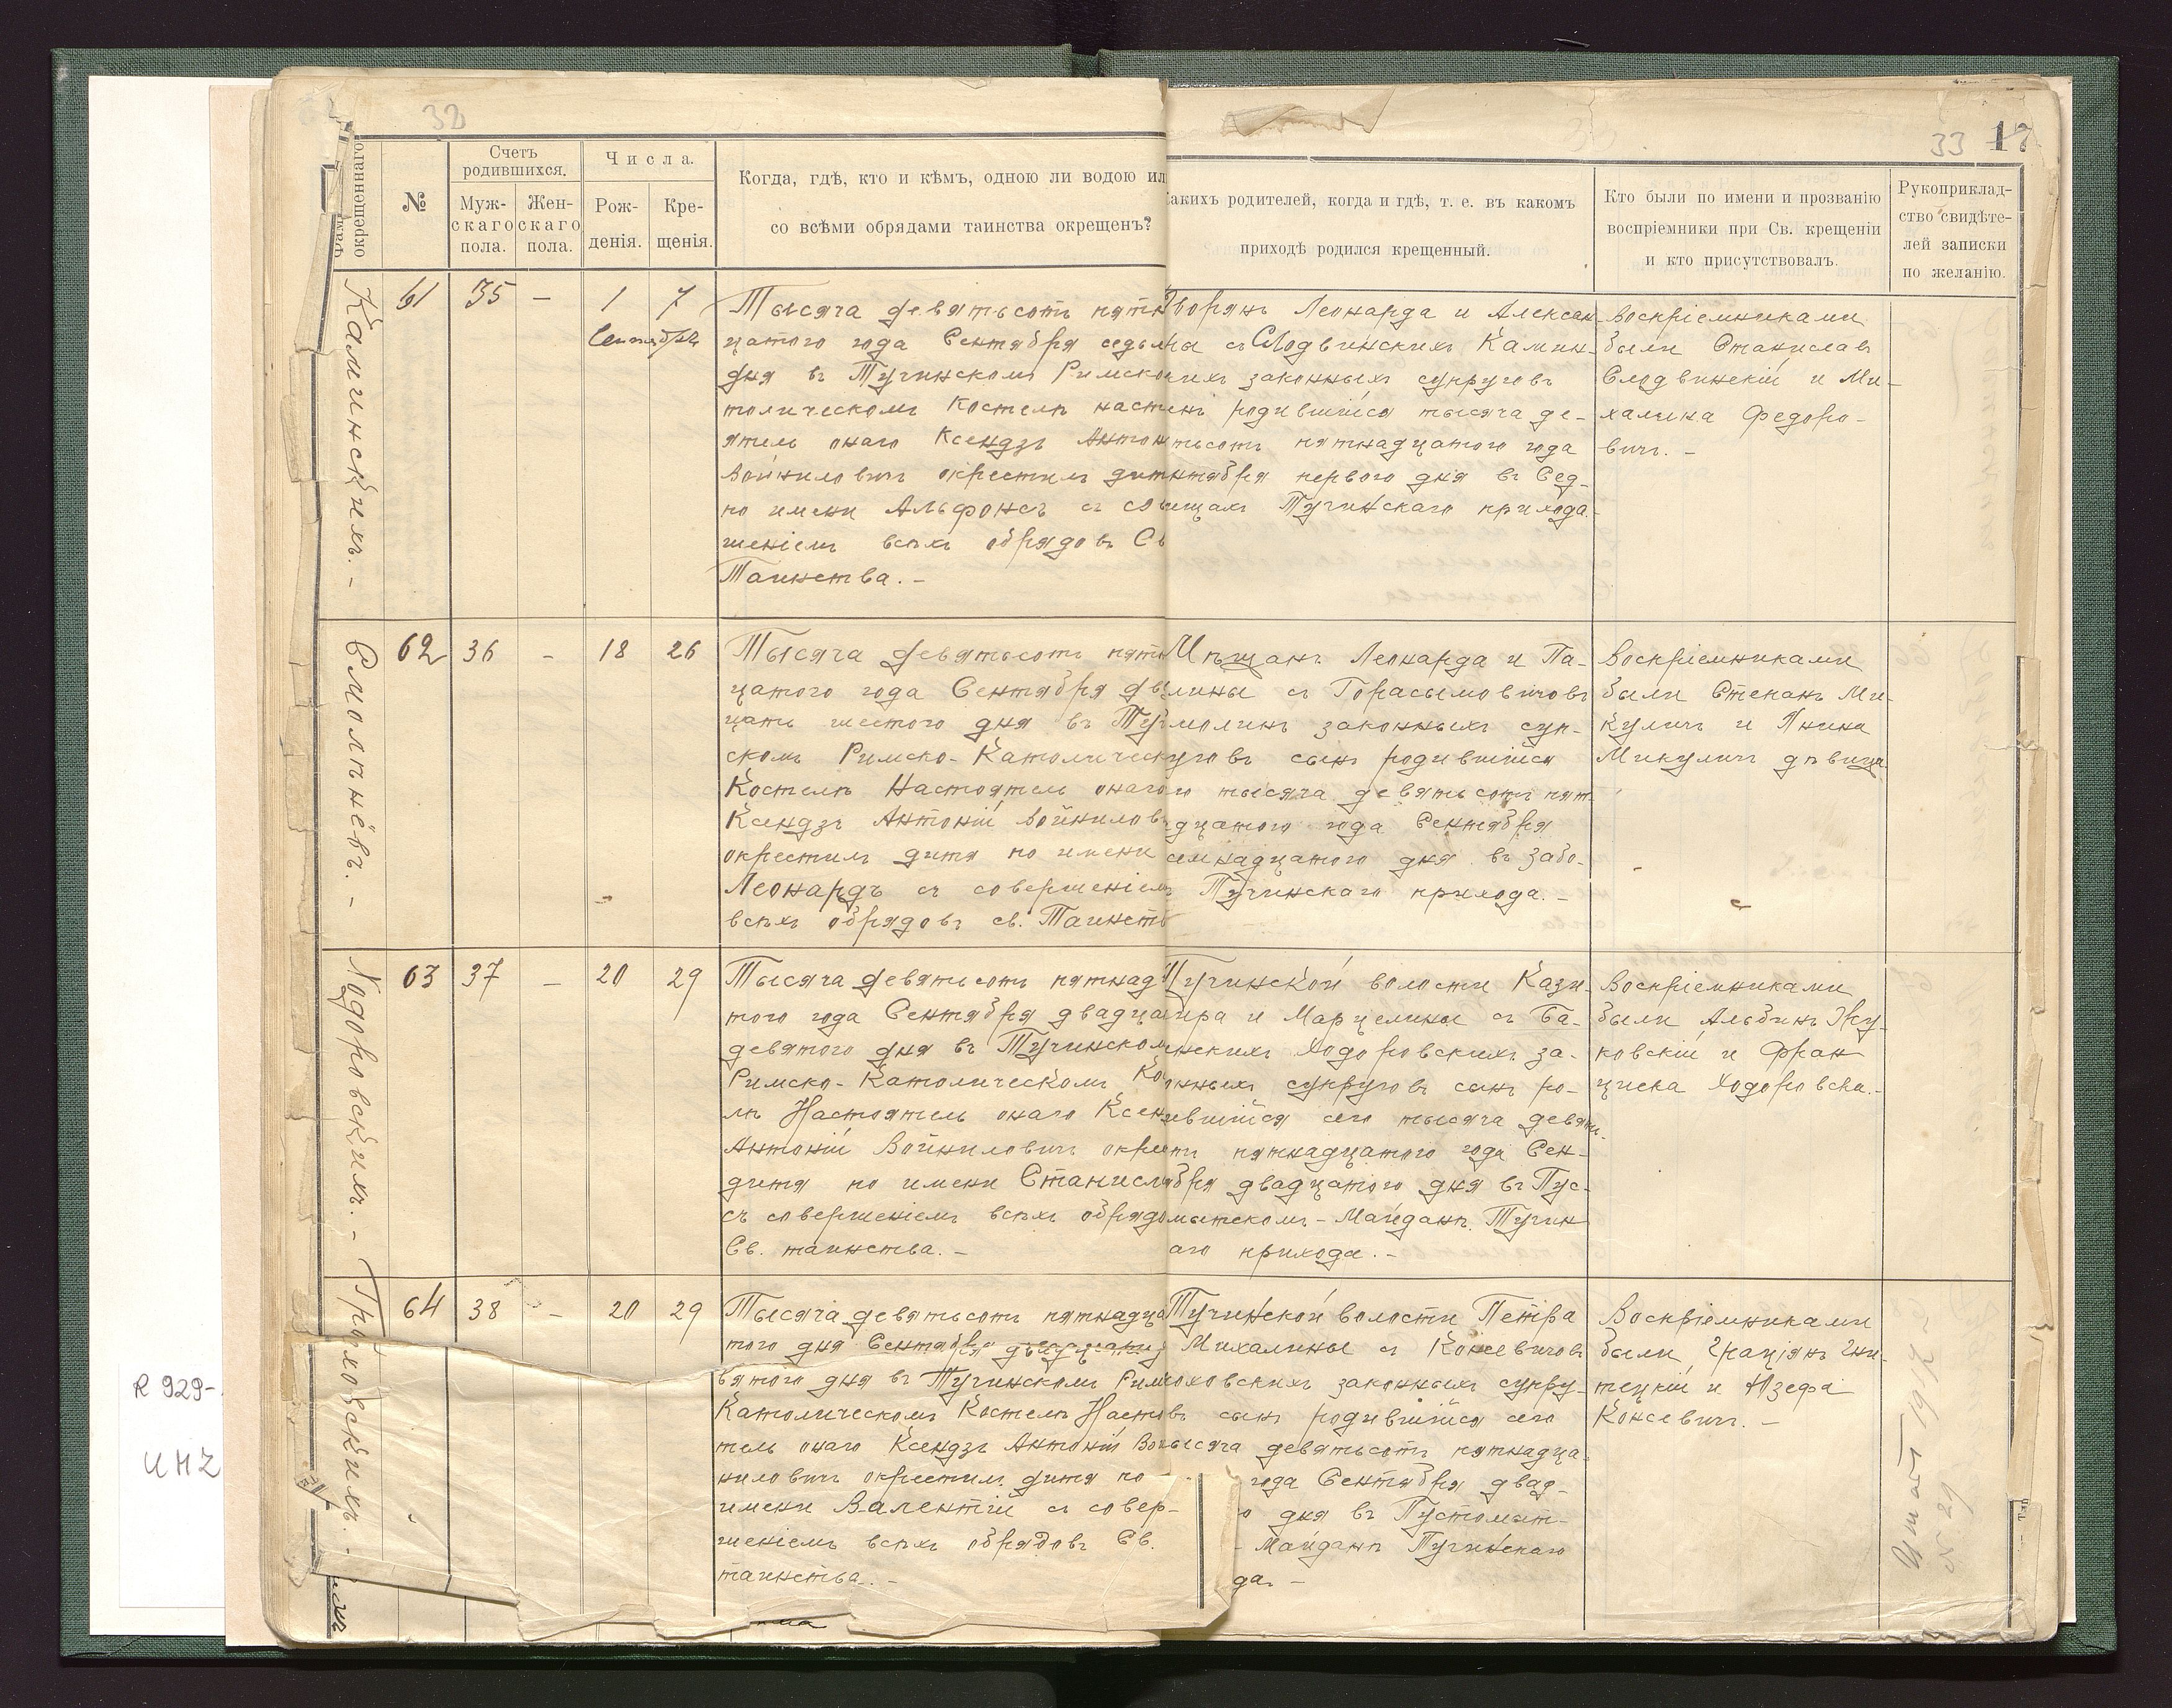 32
окрещеннаго
№
Счетъ родившихся.
Муж-скаго пола.
Жен-скаго пола.
Числа.
Рож-денія.
Кре-щенія.
Когда, гдѣ, кто и кѣмъ, одною ли водою ил
со всѣми обрядами таинства окрещенъ?
33 17
акихъ родителей, когда и гдѣ, т. е. въ какомъ
приходѣ родился крещенный.
Кто были по имени и прозванію
воспріемники при Св. крещеніи
и кто присутствовалъ.
Рукоприклад-
ство свидѣте-
лей записки
по желанію.
Каминскихъ. -
61 35 - 1 7
Сентября
Тысяча девятьсотъ пятн
цатого года Сентября седьм
дня въ Тучинскомъ Римско
толическомъ Костелѣ насто
ятель онаго Ксендзъ Антон
Войниловичъ окрестилъ дит
по имени Альфонсъ съ сов
шеніемъ всѣхъ обрядовъ Св
Таинства. -
Дворянъ Леонарда и Алексан-
ны съ Слодвинскихъ Камин-
ихъ законныхъ супруговъ
нъ родившійся тысяча де-
тьсотъ пятнадцатого года
нтября первого дня въ Сед-
ищахъ Тучинскаго прихода.
Воспріемниками
были Станиславъ
Слодвинскій и Ми-
халина Федоро-
вичъ. -
Смолѣнёвъ. -
62 36 - 18 26
Тысяча девятьсотъ пятн
цатого года Сентября дв
цать шестого дня въ Туч
скомъ Римско-Католическ
Костелѣ Настоятель онаго
Ксендзъ Антоній Войнилов
окрестилъ дитя по имени
Леонардъ съ совершеніемъ
всѣхъ обрядовъ св. Таинств
Мѣщанъ Леонарда и Па-
лины съ Горасымовичовъ
молинъ законныхъ суп-
уговъ сынъ родившійся
го тысяча девятьсотъ пят-
дцатого года Сентября
семнадцатого дня въ Забо-
Тучинскаго прихода. -
Воспріемниками
были Степанъ Ми-
куличъ и Янина
Микуличъ дѣвица
Ходоровскихъ. -
63 37 - 20 29
Тысяча девятьсотъ пятнад
того года Сентября двадца
девятого дня въ Тучинском
Римско-Католическомъ Ко
лѣ Настоятель онаго Ксен
Антоній Войниловичъ окре
дитя по имени Станисл
съ совершеніемъ всѣхъ обрядо
Св. таинства. -
Тучинской волости Кази-
ира и Марцелины съ Ба-
нскихъ Ходоровскихъ за-
онныхъ супруговъ сынъ ро-
ившійся сего тысяча девять-
тъ пятнадцатого года Сен-
бря двадцатого дня въ Пус-
мытскомъ-Майданѣ Тучин
аго прихода. -
Воспріемниками
были Альбинъ Жу-
ковскій и Фран
циска Ходоровска. -
Гроховскихъ. -
64 38 - 20 29
Тысяча девятьсотъ пятнадца
того дня Сентября двадцать
вятого дня въ Тучинскомъ Рим
Католическомъ Костелѣ Насто
тель онаго Ксендзъ Антоній Вой
ниловичъ окрестилъ дитя по
имени Валентій съ совер-
шеніемъ всѣхъ обрядовъ Св.
таинства. -
Тучинской волости Петра
Михалины съ Консевичовъ
оховскихъ законныхъ супру-
въ сынъ родившійся сего
ысяча девятьсотъ пятнадца-
года Сентября двад-
о дня въ Пустомыт-
- Майданѣ Тучинскаго
да. -
Воспріемниками
были Граціянъ Гни-
тецкій и Юзефа
Консевичъ. -
N 29
R 929-